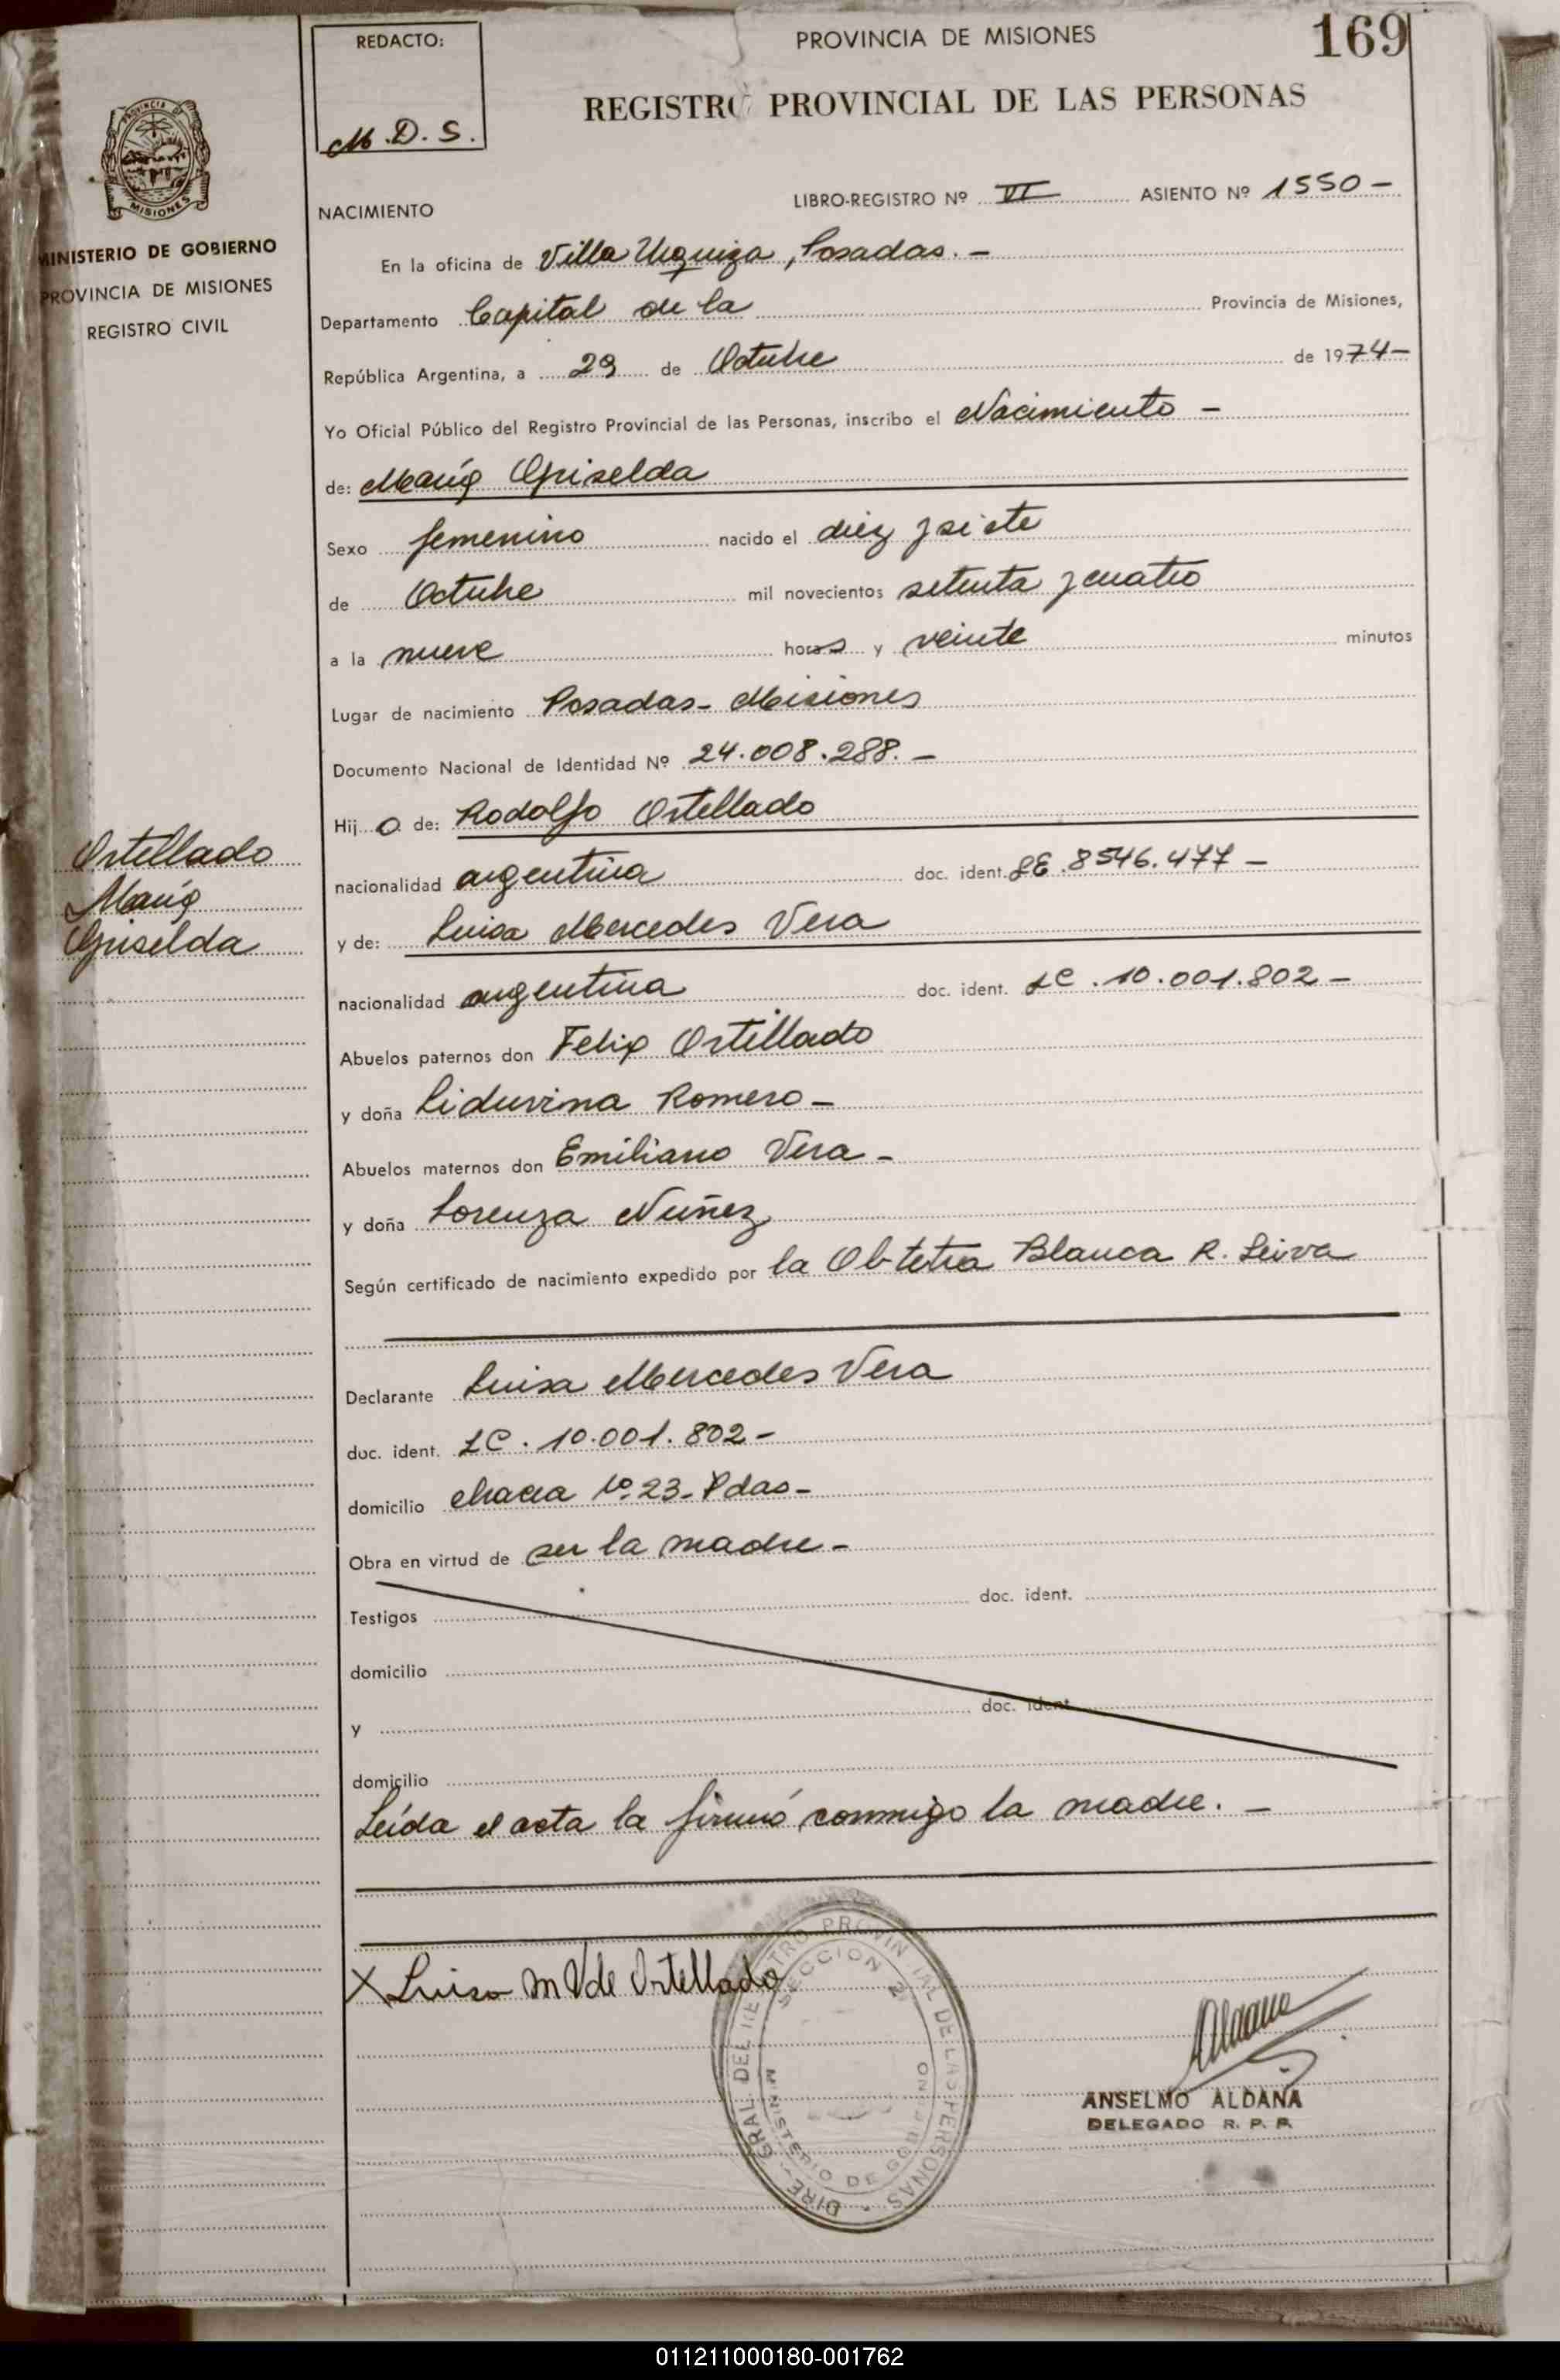 REDACTO:
M.D.S.
PROVINCIA DE MISIONES
169
REGISTRO PROVINCIAL DE LAS PERSONAS
PROVINCIA DE
MISIONES
MINISTERIO DE GOBIERNO
PROVINCIA DE MISIONES
REGISTRO CIVIL
NACIMIENTO
LIBRO-REGISTRO Nº VI ASIENTO Nº 1550-
En la oficina de Villa Urquiza, Posadas.-
Departamento Capital de la Provincia de Misiones,
República Argentina, a 29 de Octubre de 1974-
Yo Oficial Público del Registro Provincial de las Personas, inscribo el Nacimiento -
de: María Griselda
Sexo femenino nacido el diez y siete
de Octubre mil novecientos setenta y cuatro
a la nueve horas y veinte minutos
Lugar de nacimiento Posadas- Misiones
Documento Nacional de Identidad Nº 24.008.288.-
Hij a de: Rodolfo Ortellado
Ortellado
María
Griselda
nacionalidad argentina doc. ident. LE.8546.477-
y de: Luisa Mercedes Vera
nacionalidad argentina doc. ident. LC.10.001.802-
Abuelos paternos don Felix Ortellado
y doña Liduvina Romero-
Abuelos maternos don Emiliano Vera-
y doña Lorenza Nuñez
Según certificado de nacimiento expedido por la Obtetra Blanca R. Leiva
Declarante Luisa Mercedes Vera
doc. ident. LC.10.001.802-
domicilio chacra Nº 23-Pdas-
Obra en virtud de ser la madre-
Testigos doc. ident.
domicilio
y doc. ident.
domicilio
Leída el acta la firmó conmigo la madre.-
X Luisa M V de Ortellado
DIRE GRAL. DEL RE TRO PROVIN IAL DE LAS PERSONAS
SECCION 2
MINISTERIO DE GOBIERNO
Aldana
ANSELMO ALDANA
DELEGADO R. P. P.
011211000180-001762